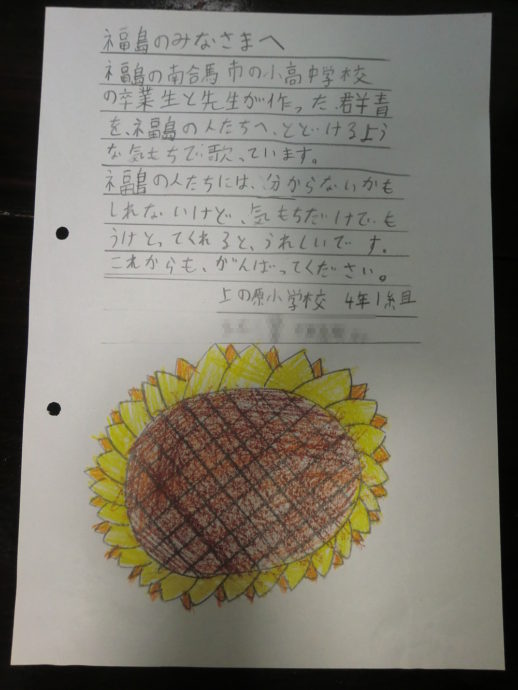 福島のみなさまへ
福島の南合馬市の小高中学校
の卒業生と先生が作った、群青
を、福島の人たちへ、とどけるよう
な気もちで歌っています。
福島の人たちには、分からないかも
しれないけど、気もちだけでも
うけとってくれると、うれしいです。
これからも、がんばってください。
上の原小学校 4年1組